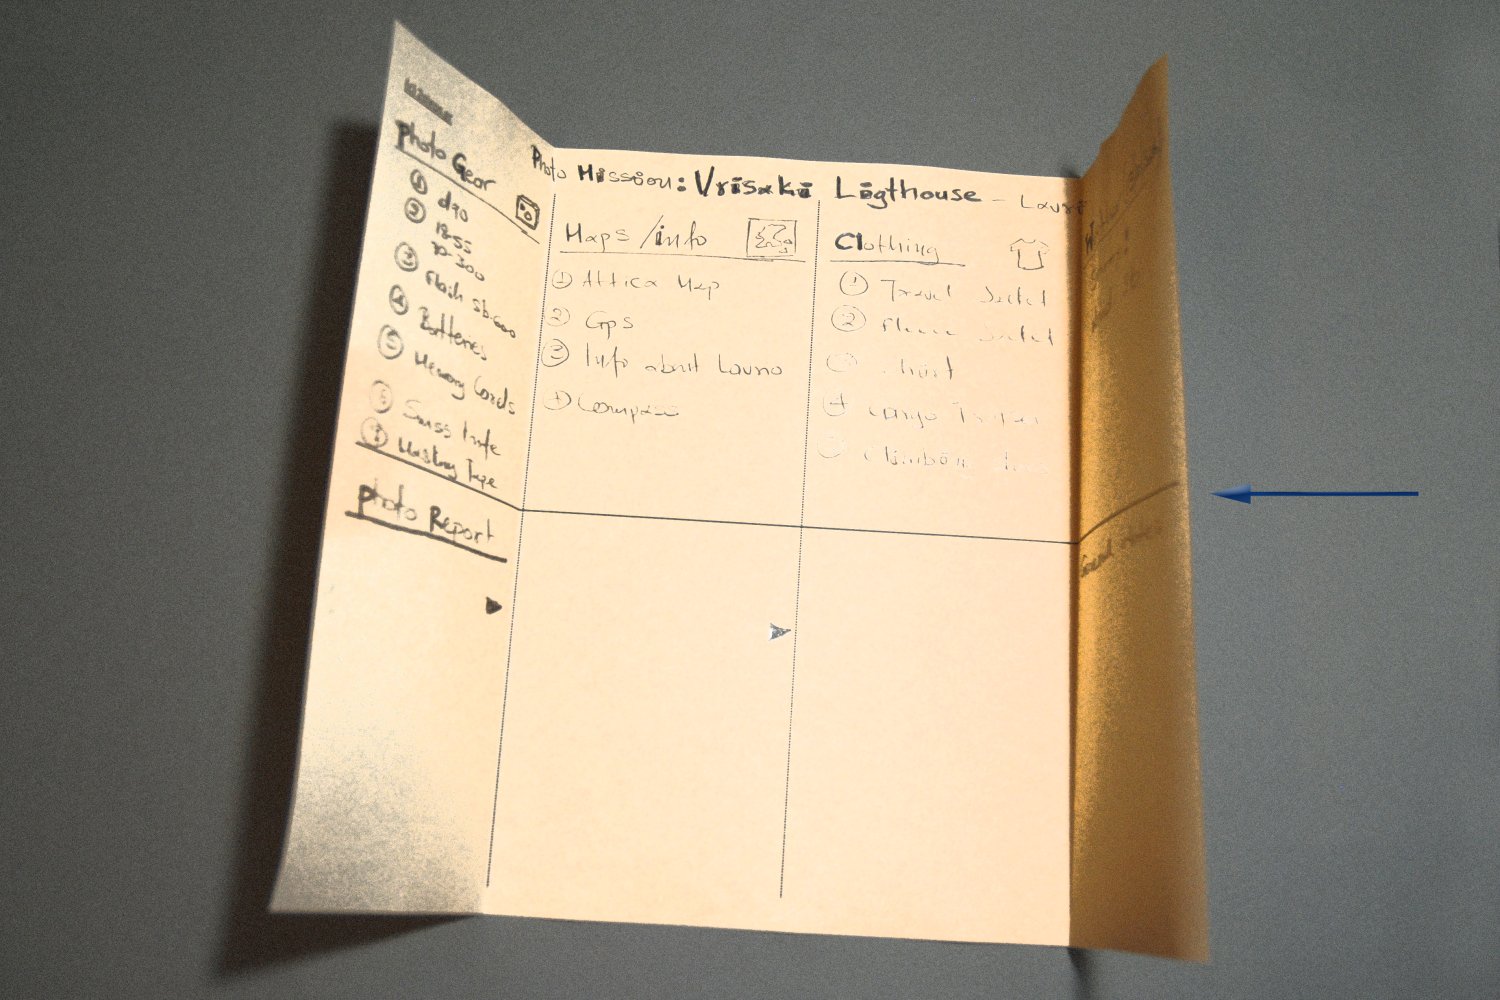 Photo Mission: Vrisaki Ligthouse - Lauri
Photo Gear
① d90
② 18-55
70-300
③ Flash sb-600
④ Batteries
⑤ Memory Cards
⑥ Swiss knife
⑦ Masking Tape
Maps/info
① Attica Map
② Gps
③ Info about Lavrio
④ Compass
Clothing
① Travel Jacket
② Fleece Jacket
④ cargo
⑤ Climbing
photo Report